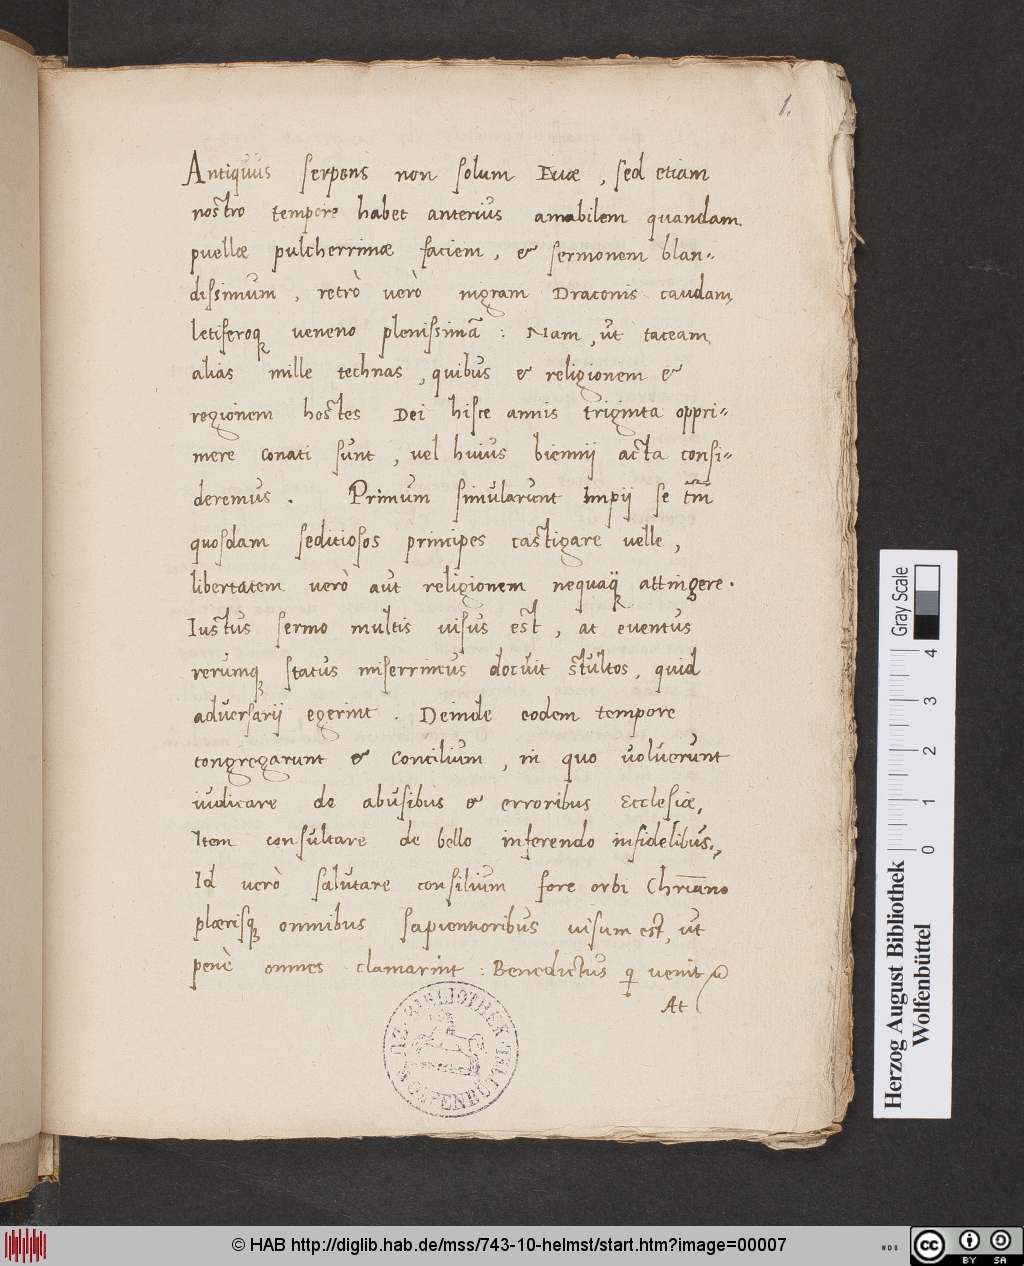 1.
Antiquus serpens non solum Euæ, sed etiam
nostro tempore habet anterius amabilem quandam
puellæ pulcherrimæ faciem, & sermonem blan=
dissimum, retrò uerò nigram Draconis caudam
letiferoq; ueneno plenissimā: Nam, ut taceam
alias mille technas, quibus & religionem &
regionem hostes Dei hisce annis triginta oppri=
mere conati sunt, uel huius biennij acta consi=
deremus. Primum simularunt Impij se tm̄
quosdam seditiosos principes castigare uelle,
libertatem uerò aut religionem nequaq̃ attingere.
Iustus sermo multis uisus est, at euentus
rerumq; status miserrimus docuit stultos, quid
aduersarij egerint. Deinde eodem tempore
congregarunt & Concilium, in quo uoluerunt
iudicare de abusibus & erroribus Ecclesiæ,
Item consultare de bello inferendo infidelibus.,
Id uerò salutare consilium fore orbi Chr̄iano
plærisq; omnibus sapientioribus uisum est, ut
penè omnes clamarint: Benedictus q̣ uenit
At
HERZOG AUGUST BIBLIOTHEK
WOLFENBÜTTEL
Gray Scale
0 1 2 3 4
Herzog August Bibliothek
Wolfenbüttel
© HAB http://diglib.hab.de/mss/743-10-helmst/start.htm?image=00007
WDB
cc BY SA